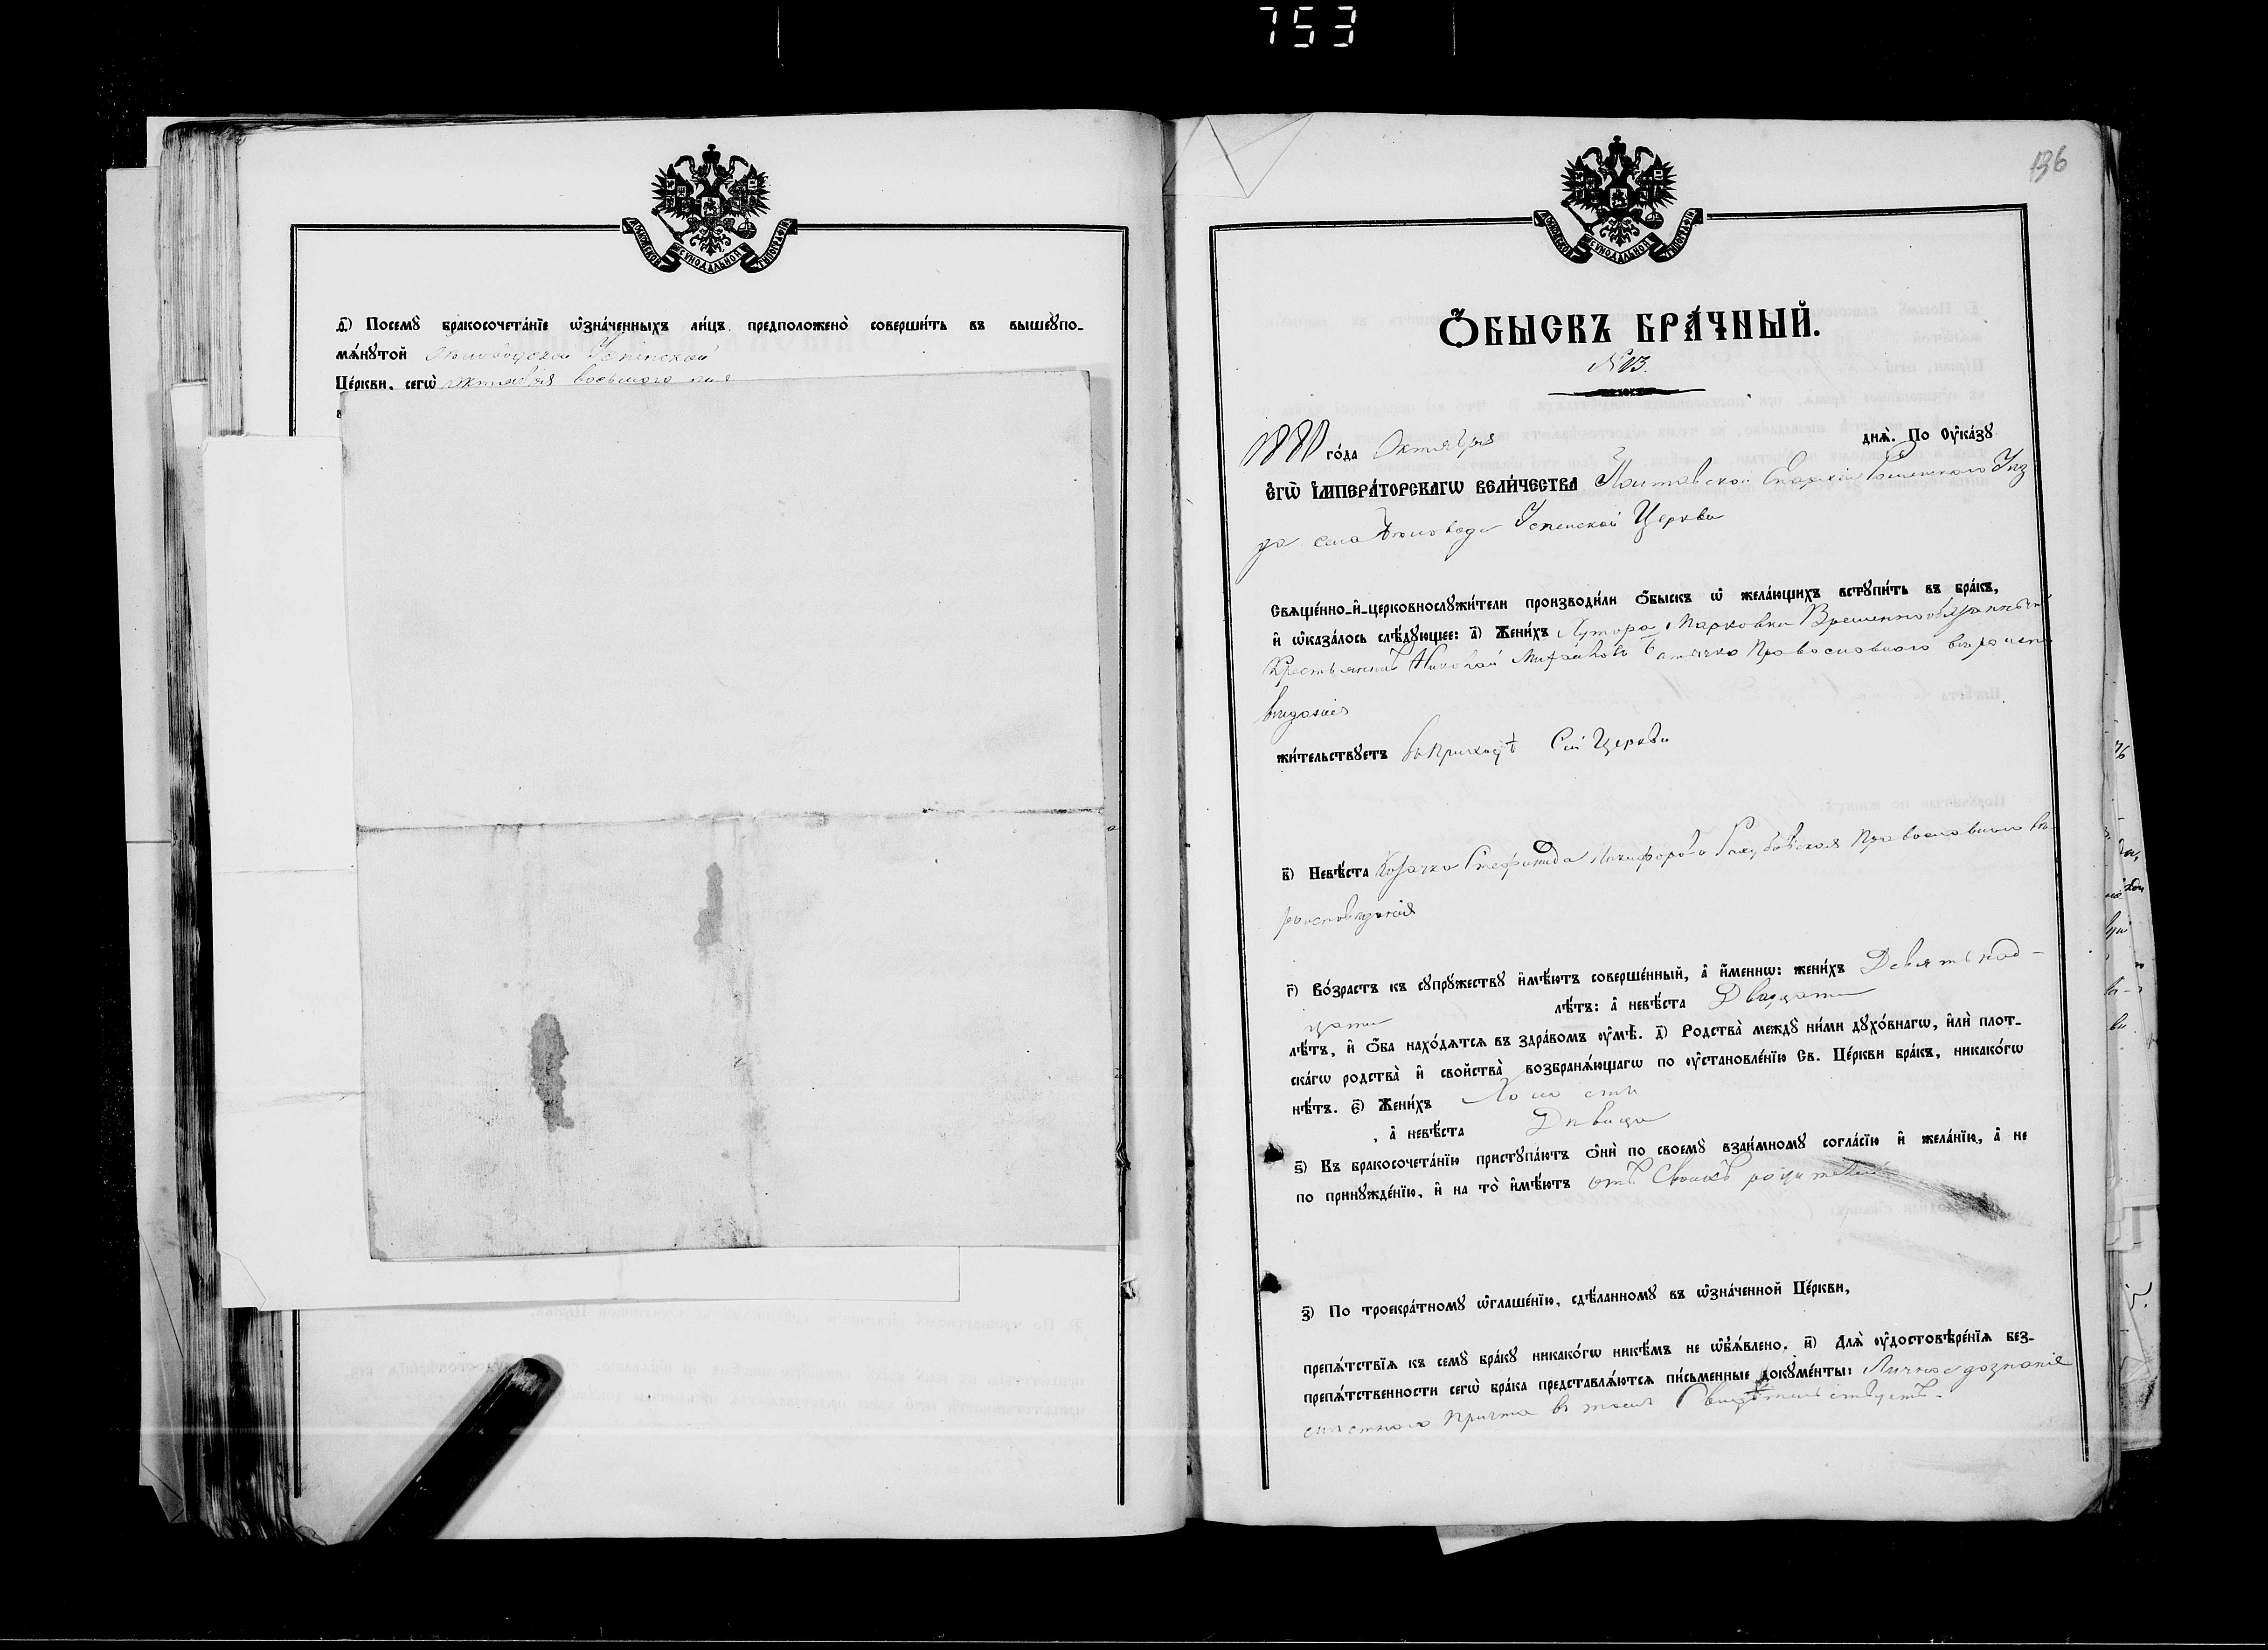 753
МОСКОВСКОЙ СѴНОДАЛЬНОЙ ТИПОГРАФІИ
д҃) Посемꙋ бракосочета́нїе ѡ҆зна́ченныхъ ли́цъ предположено̀ соверши́ть въ вышеꙋпо-
мѧ́нꙋтой Успенской
Це́ркви, сегѡ̀ октября восьмого дня
136
МОСКОВСКОЙ СѴНОДАЛЬНОЙ ТИПОГРАФІИ
Ѻ҆БЫСКЪ БРА́ЧНЫЙ.
№ 13.
го́да Октября днѧ̀. По Оу҆ка́зꙋ
Є҆ГѠ̀ І҆МПЕРА́ТОРСКАГѠ ВЕЛИ́ЧЕСТВА Полтавской Епархіи Роменского Уез
да села Успенской Церкви
Свѧще́нно-и҆-церковнослꙋжи́тели производи́ли ѻ҆́быскъ ѡ҆ жела́ющихъ встꙋпи́ть въ бра́къ,
и҆ ѡ҆каза́лось слѣ́дꙋющее: а҃) Жени́хъ Хутора Марковки Временнообязанный
Крестьянинъ Николай Михайловъ Православного вероиспо
ведания
жи́тельствꙋетъ въ приходѣ Сей Церкви
в҃) Невѣ́ста Козачка Стефанида Никифорова Православного ве
роисповедания
г҃) Во́зрастъ къ сꙋпрꙋ́жествꙋ и҆мѣ́ютъ соверше́нный, а҆ и҆́меннѡ: жени́хъ Девятнад-
цати лѣ́тъ: а҆ невѣ́ста Двадцати
лѣ́тъ, и҆ ѻ҆́ба нахо́дѧтсѧ въ здра́вомъ ᲂу҆мѣ̀. д҃) Родства̀ междꙋ̀ ни́ми дꙋхо́внагѡ, и҆лѝ плот-
ска́гѡ родства̀ и҆ свойства̀ возбранѧ́ющагѡ по ᲂу҆становле́нїю Св. Це́ркви бра́къ, никако́гѡ
нѣ́тъ. є҃) Жени́хъ Холостъ
, а҆ невѣ́ста Девица
ѕ҃) Къ бракосочета́нїю пристꙋпа́ютъ ѻ҆нѝ по своемꙋ̀ взаи́мномꙋ согла́сїю и҆ жела́нїю, а҆ не
по принꙋжде́нїю, и҆ на то̀ и҆мѣ́ютъ отъ Своихъ родителей
з҃) По троекра́тномꙋ ѡ҆глаше́нїю, сдѣ́ланномꙋ въ ѡ҆зна́ченной Це́ркви,
препѧ́тствїѧ къ семꙋ̀ бра́кꙋ никако́гѡ никѣ́мъ не ѡ҆б̾ѧ́влено. и҃) Длѧ̀ ᲂу҆достовѣре́нїѧ без-
препѧ́тственности сегѡ̀ бра́ка представлѧ́ютсѧ пи́сьменные докꙋме́нты: Личное дознание
местного Причта в томъ Свидетельствуетъ.